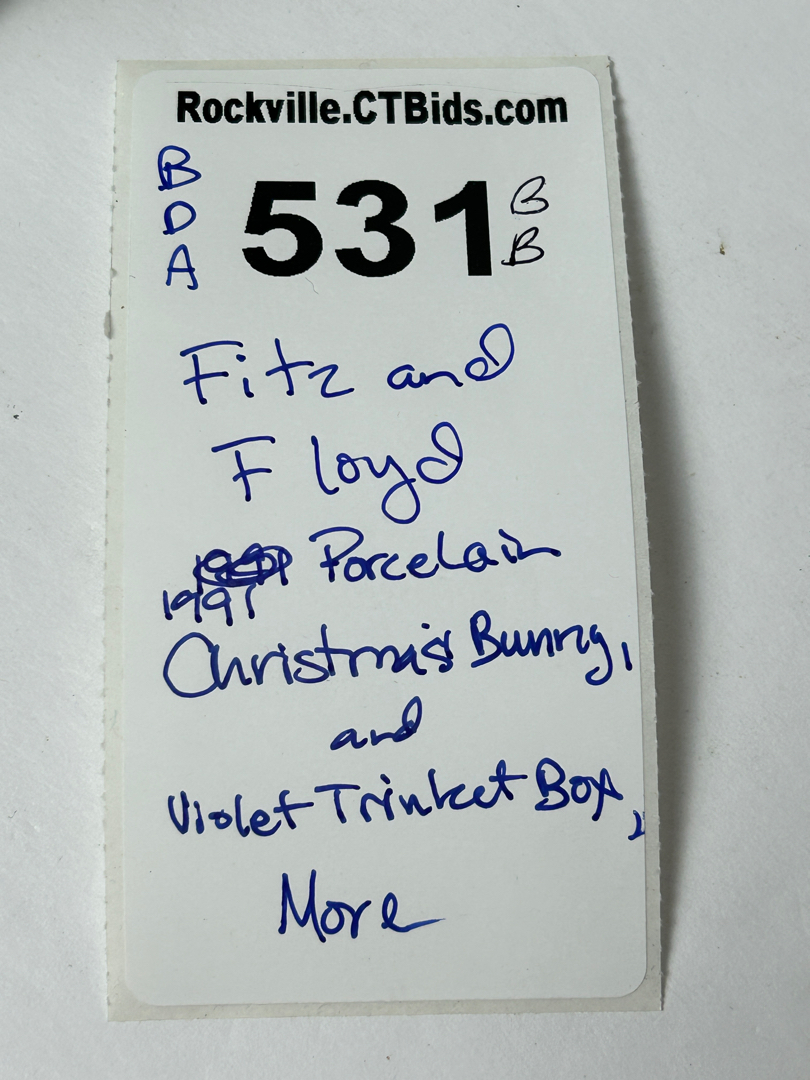 Rockville.CTBids.com
B
D
A
531
B
B
Fitz and
Floyd
Porcelain
1991
Christmas Bunny,
and
Violet Trinket Box,
More